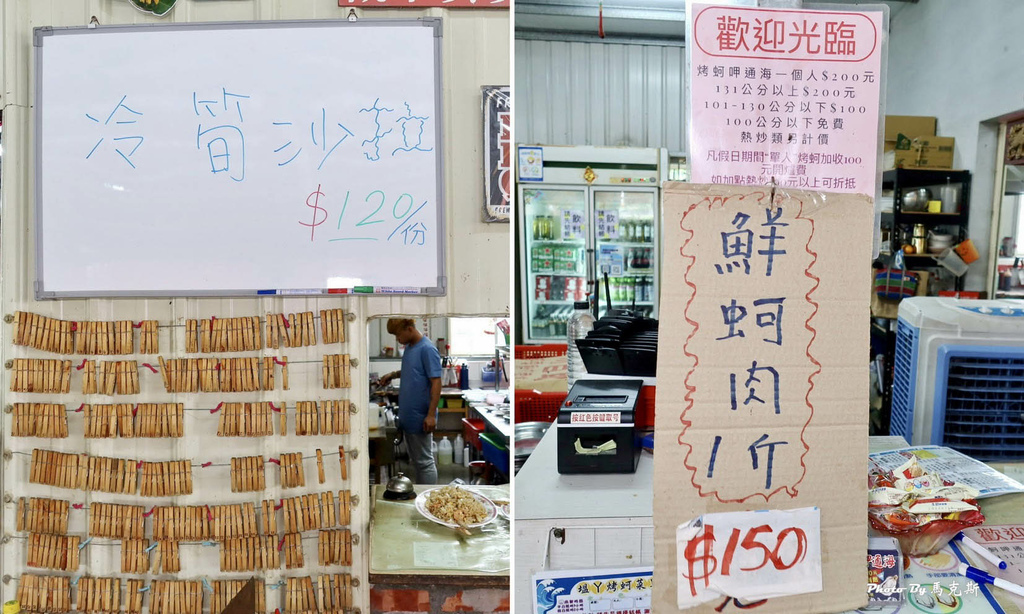 冷筍沙拉
$120/份
歡迎光臨
烤蚵呷通海一個人$200元
131公分以上$200元
101-130公分以下$100
100公分以下免費
熱炒類另計價
凡假日期間"單人"烤蚵加收100
元開爐費
如加點熱炒 元以上可折抵
鮮
蚵
肉
1斤
$150
飲料
飲料
按紅色按鍵取号
塭丫烤蚵
歡迎
Photo By 馬克斯